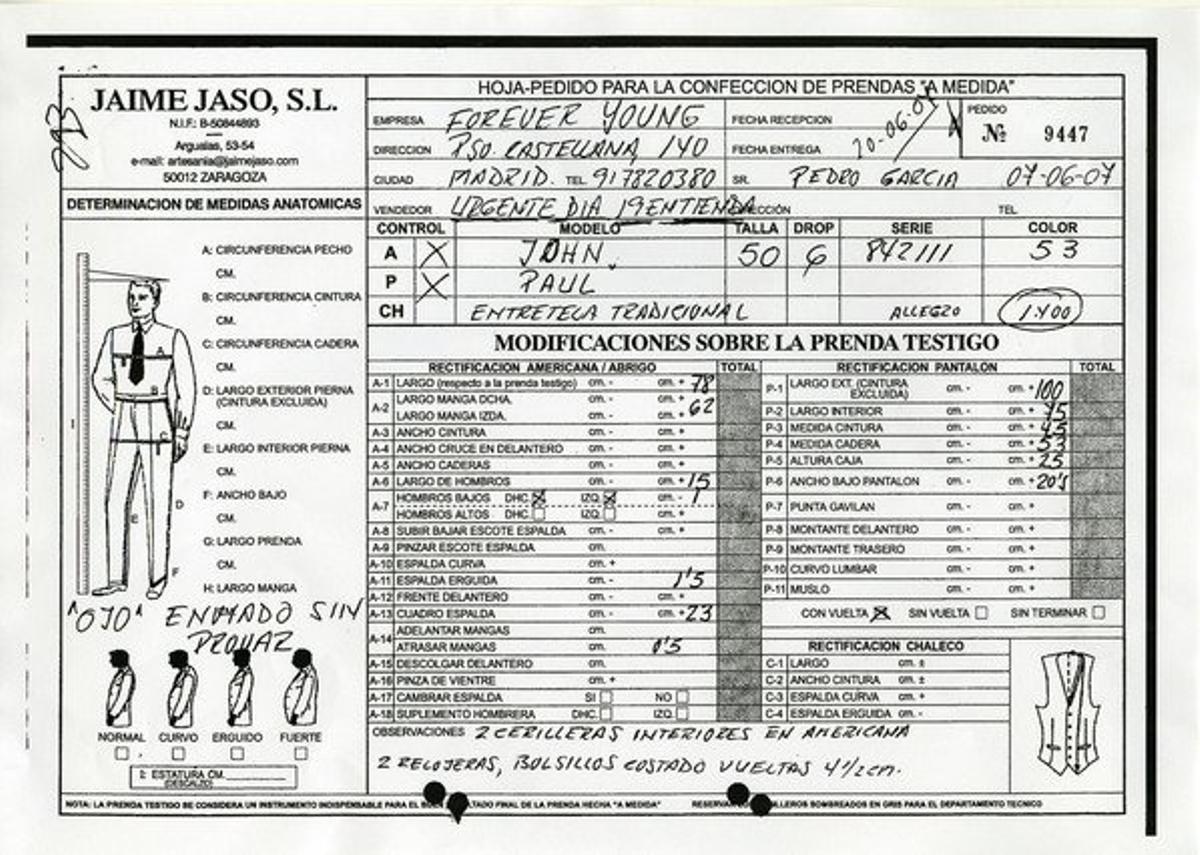 JAIME JASO, S.L.
N.I.F.: B-50844893
Argualas, 53-54
e-mail: artesania@jaimejaso.com
50012 ZARAGOZA
HOJA-PEDIDO PARA LA CONFECCION DE PRENDAS "A MEDIDA"
EMPRESA FOREVER YOUNG FECHA RECEPCION
DIRECCION PSO. CASTELLANA, 140 FECHA ENTREGA 20-06-07
PEDIDO Nº 9447
CIUDAD MADRID. TEL. 917820380 SR. PEDRO GARCIA 07-06-07
VENDEDOR URGENTE DIA 19 EN TIENDA TEL
DETERMINACION DE MEDIDAS ANATOMICAS
A: CIRCUNFERENCIA PECHO
CM.
B: CIRCUNFERENCIA CINTURA
CM.
C: CIRCUNFERENCIA CADERA
CM.
D: LARGO EXTERIOR PIERNA
(CINTURA EXCLUIDA)
CM.
E: LARGO INTERIOR PIERNA
CM.
F: ANCHO BAJO
CM.
G: LARGO PRENDA
CM.
H: LARGO MANGA
"OJO" ENVIADO SIN
PROVAR
NORMAL CURVO ERGUIDO FUERTE
I: ESTATURA CM.
(DESCALZO)
CONTROL MODELO TALLA DROP SERIE COLOR
A X JOHN. 50 6 842111 53
P X PAUL
CH ENTRETELA TRADICIONAL ALLEGRO 1.400
MODIFICACIONES SOBRE LA PRENDA TESTIGO
RECTIFICACION AMERICANA / ABRIGO TOTAL
A-1 LARGO (respecto a la prenda testigo) cm. - cm. + 78
A-2 LARGO MANGA DCHA. cm. - cm. + 62
LARGO MANGA IZDA. cm. - cm. +
A-3 ANCHO CINTURA cm. - cm. +
A-4 ANCHO CRUCE EN DELANTERO cm. - cm. +
A-5 ANCHO CADERAS cm. - cm. +
A-6 LARGO DE HOMBROS cm. - cm. + 15
A-7 HOMBROS BAJOS DHC. X IZQ. X cm. - 1
HOMBROS ALTOS DHC. IZQ. cm. +
A-8 SUBIR BAJAR ESCOTE ESPALDA cm. - cm. +
A-9 PINZAR ESCOTE ESPALDA cm.
A-10 ESPALDA CURVA cm. +
A-11 ESPALDA ERGUIDA cm. - 1'5
A-12 FRENTE DELANTERO cm. - cm. +
A-13 CUADRO ESPALDA cm. - cm. + 23
A-14 ADELANTAR MANGAS cm.
ATRASAR MANGAS cm. 0'5
A-15 DESCOLGAR DELANTERO cm.
A-16 PINZA DE VIENTRE cm. +
A-17 CAMBRAR ESPALDA SI NO
A-18 SUPLEMENTO HOMBRERA DHC. IZQ.
RECTIFICACION PANTALON TOTAL
P-1 LARGO EXT. (CINTURA EXCLUIDA) cm. - cm. + 100
P-2 LARGO INTERIOR cm. - cm. + 75
P-3 MEDIDA CINTURA cm. - cm. + 45
P-4 MEDIDA CADERA cm. - cm. + 53
P-5 ALTURA CAJA cm. - cm. + 25
P-6 ANCHO BAJO PANTALON cm. - cm. + 20'5
P-7 PUNTA GAVILAN cm. - cm. +
P-8 MONTANTE DELANTERO cm. - cm. +
P-9 MONTANTE TRASERO cm. - cm. +
P-10 CURVO LUMBAR cm. - cm. +
P-11 MUSLO cm. - cm. +
CON VUELTA X SIN VUELTA SIN TERMINAR
RECTIFICACION CHALECO
C-1 LARGO cm. ±
C-2 ANCHO CINTURA cm. ±
C-3 ESPALDA CURVA cm. +
C-4 ESPALDA ERGUIDA cm. -
OBSERVACIONES 2 CERILLERAS INTERIORES EN AMERICANA
2 RELOJERAS, BOLSILLOS COSTADO VUELTAS 4 1/2 cm.
NOTA: LA PRENDA TESTIGO SE CONSIDERA UN INSTRUMENTO INDISPENSABLE PARA EL FINAL DE LA PRENDA HECHA "A MEDIDA" SOMBREADOS EN GRIS PARA EL DEPARTAMENTO TECNICO